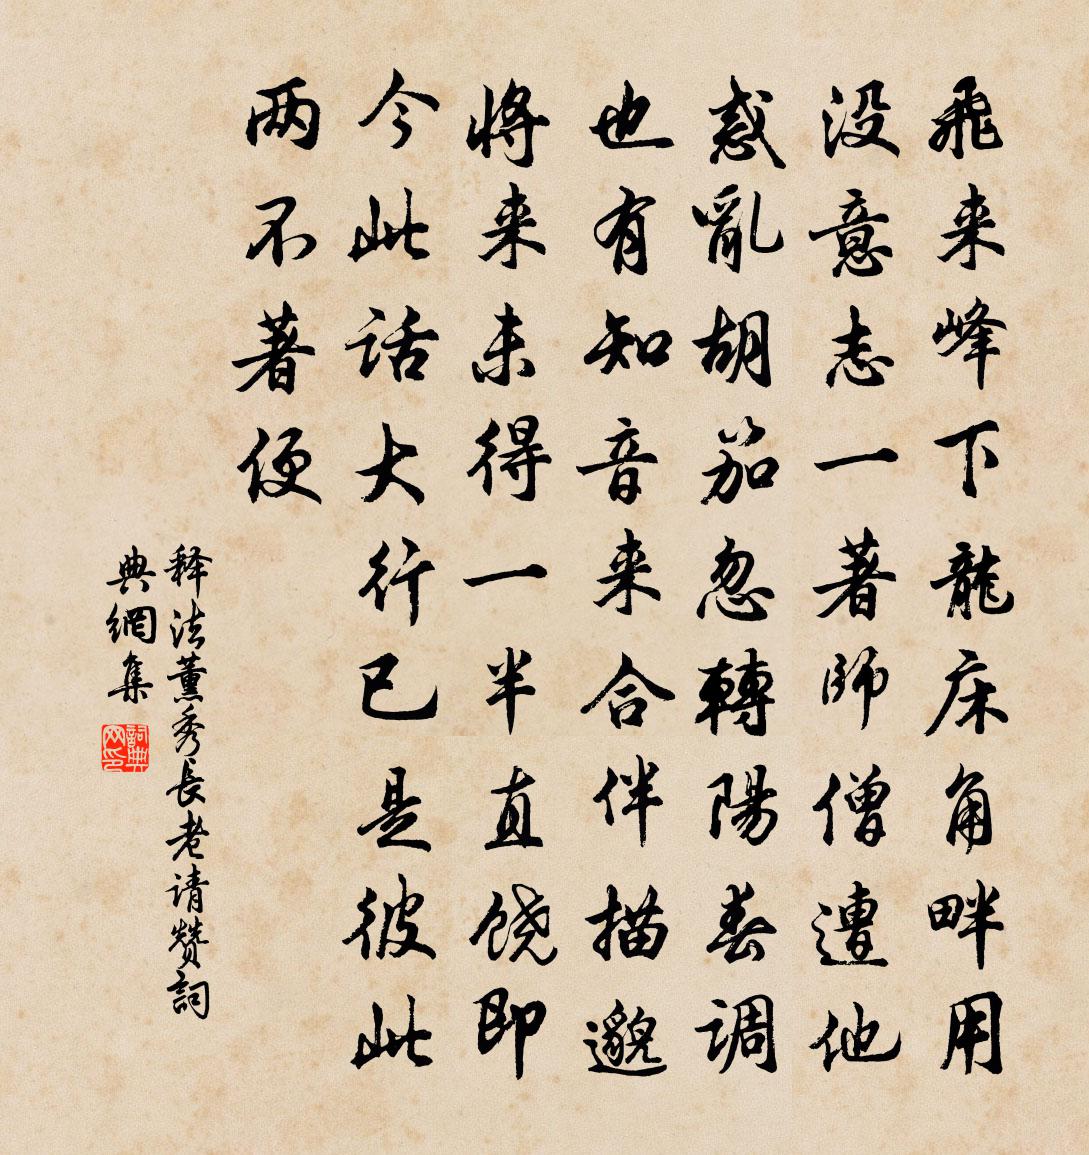 飛来峰下龍床角畔用
没意志一著師僧遭他
惑亂胡笳忽轉陽春调
也有知音来合伴描邈
將来未得一半直饶即
今此话大行已是彼此
两不著便
释法薰秀長老请赞詞
典網集
詞典网印